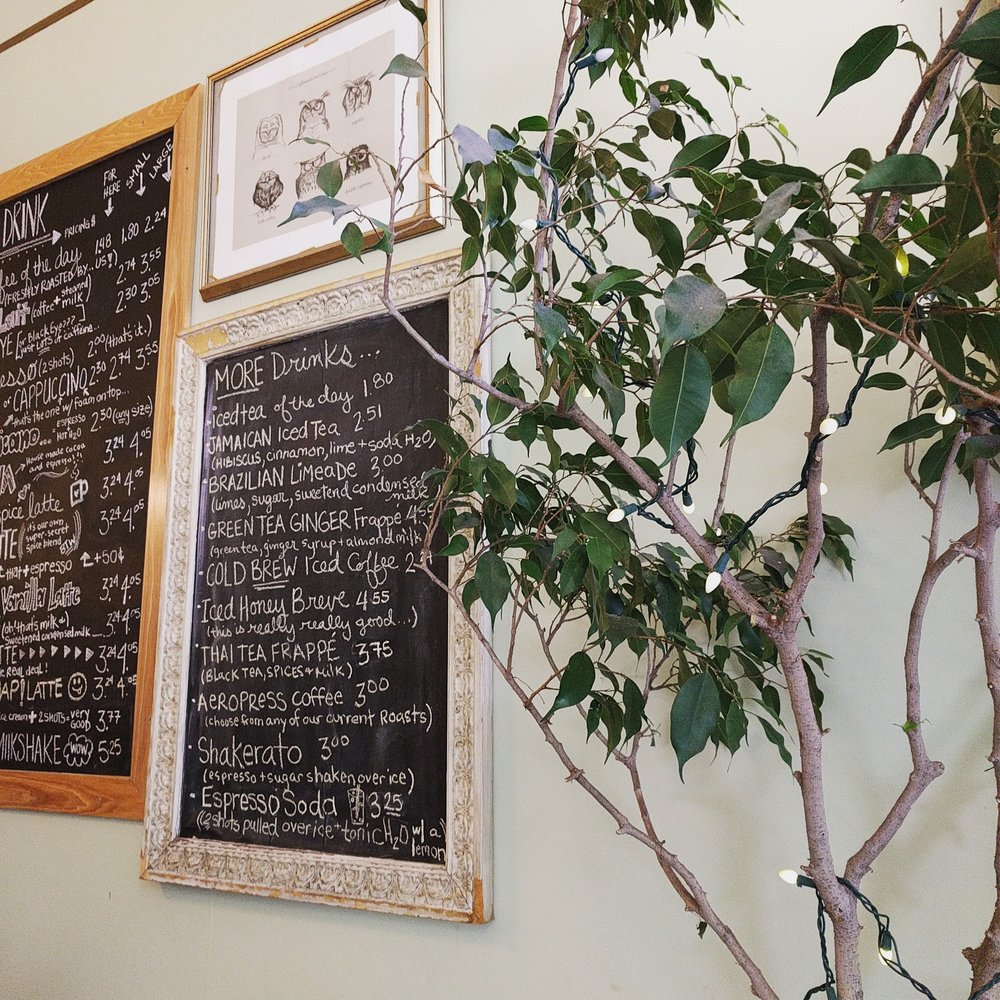 DRINK
PRICING$
FOR HERE
SMALL
LARGE
of the day 1.48 1.80 2.24
(FRESHLY ROASTED BY... US!)
(coffee + steamed milk) 2.74 3.55
(or Black Eye??? 2.30 3.05
just LOTS of caffeine...
(2 shots) 2.00 (that's it.)
or CAPPUCCINO 2.30 2.74 3.55
that's the one w/ Foam on top...
ESPRESSO + HOT H2O 2.30 (any size)
House made cocoa and espresso!! 3.24 4.05
spice latte 3.24 4.05
(it's our own super-secret spice blend) 3.24 4.05
that + espresso +50¢
Vanilla Latte 3.24 4.05
(oh! that's milk
Sweetened condensed milk 3.24 4.05
Real Deal! 3.24 4.05
LATTE 3.24 4.05
ice cream + 2 SHOTS = very GOOD 3.77
MILKSHAKE wow 5.25
MORE Drinks...
• iced tea of the day 1.80
JAMAICAN Iced Tea 2.51
(HIBISCUS, cinnamon, lime + soda H2O)
• BRAZILIAN LIMEADE 3.00
(limes, sugar, sweetend condensed milk
• GREEN TEA GINGER Frappé 4.55
(green tea, ginger syrup + almond milk
• COLD BREW Iced Coffee
• Iced Honey Breve 4.55
(this is really really good...)
• THAI TEA FRAPPÉ 3.75
(BLACK TEA, SPICES + MILK)
• AEROPRESS COFFEE 3.00
(choose from any of our current Roasts)
• Shakerato 3.00
(espresso + sugar shaken over ice)
• Espresso Soda 3.25
(2 shots pulled over ice + tonic H2O w/ a lemon)